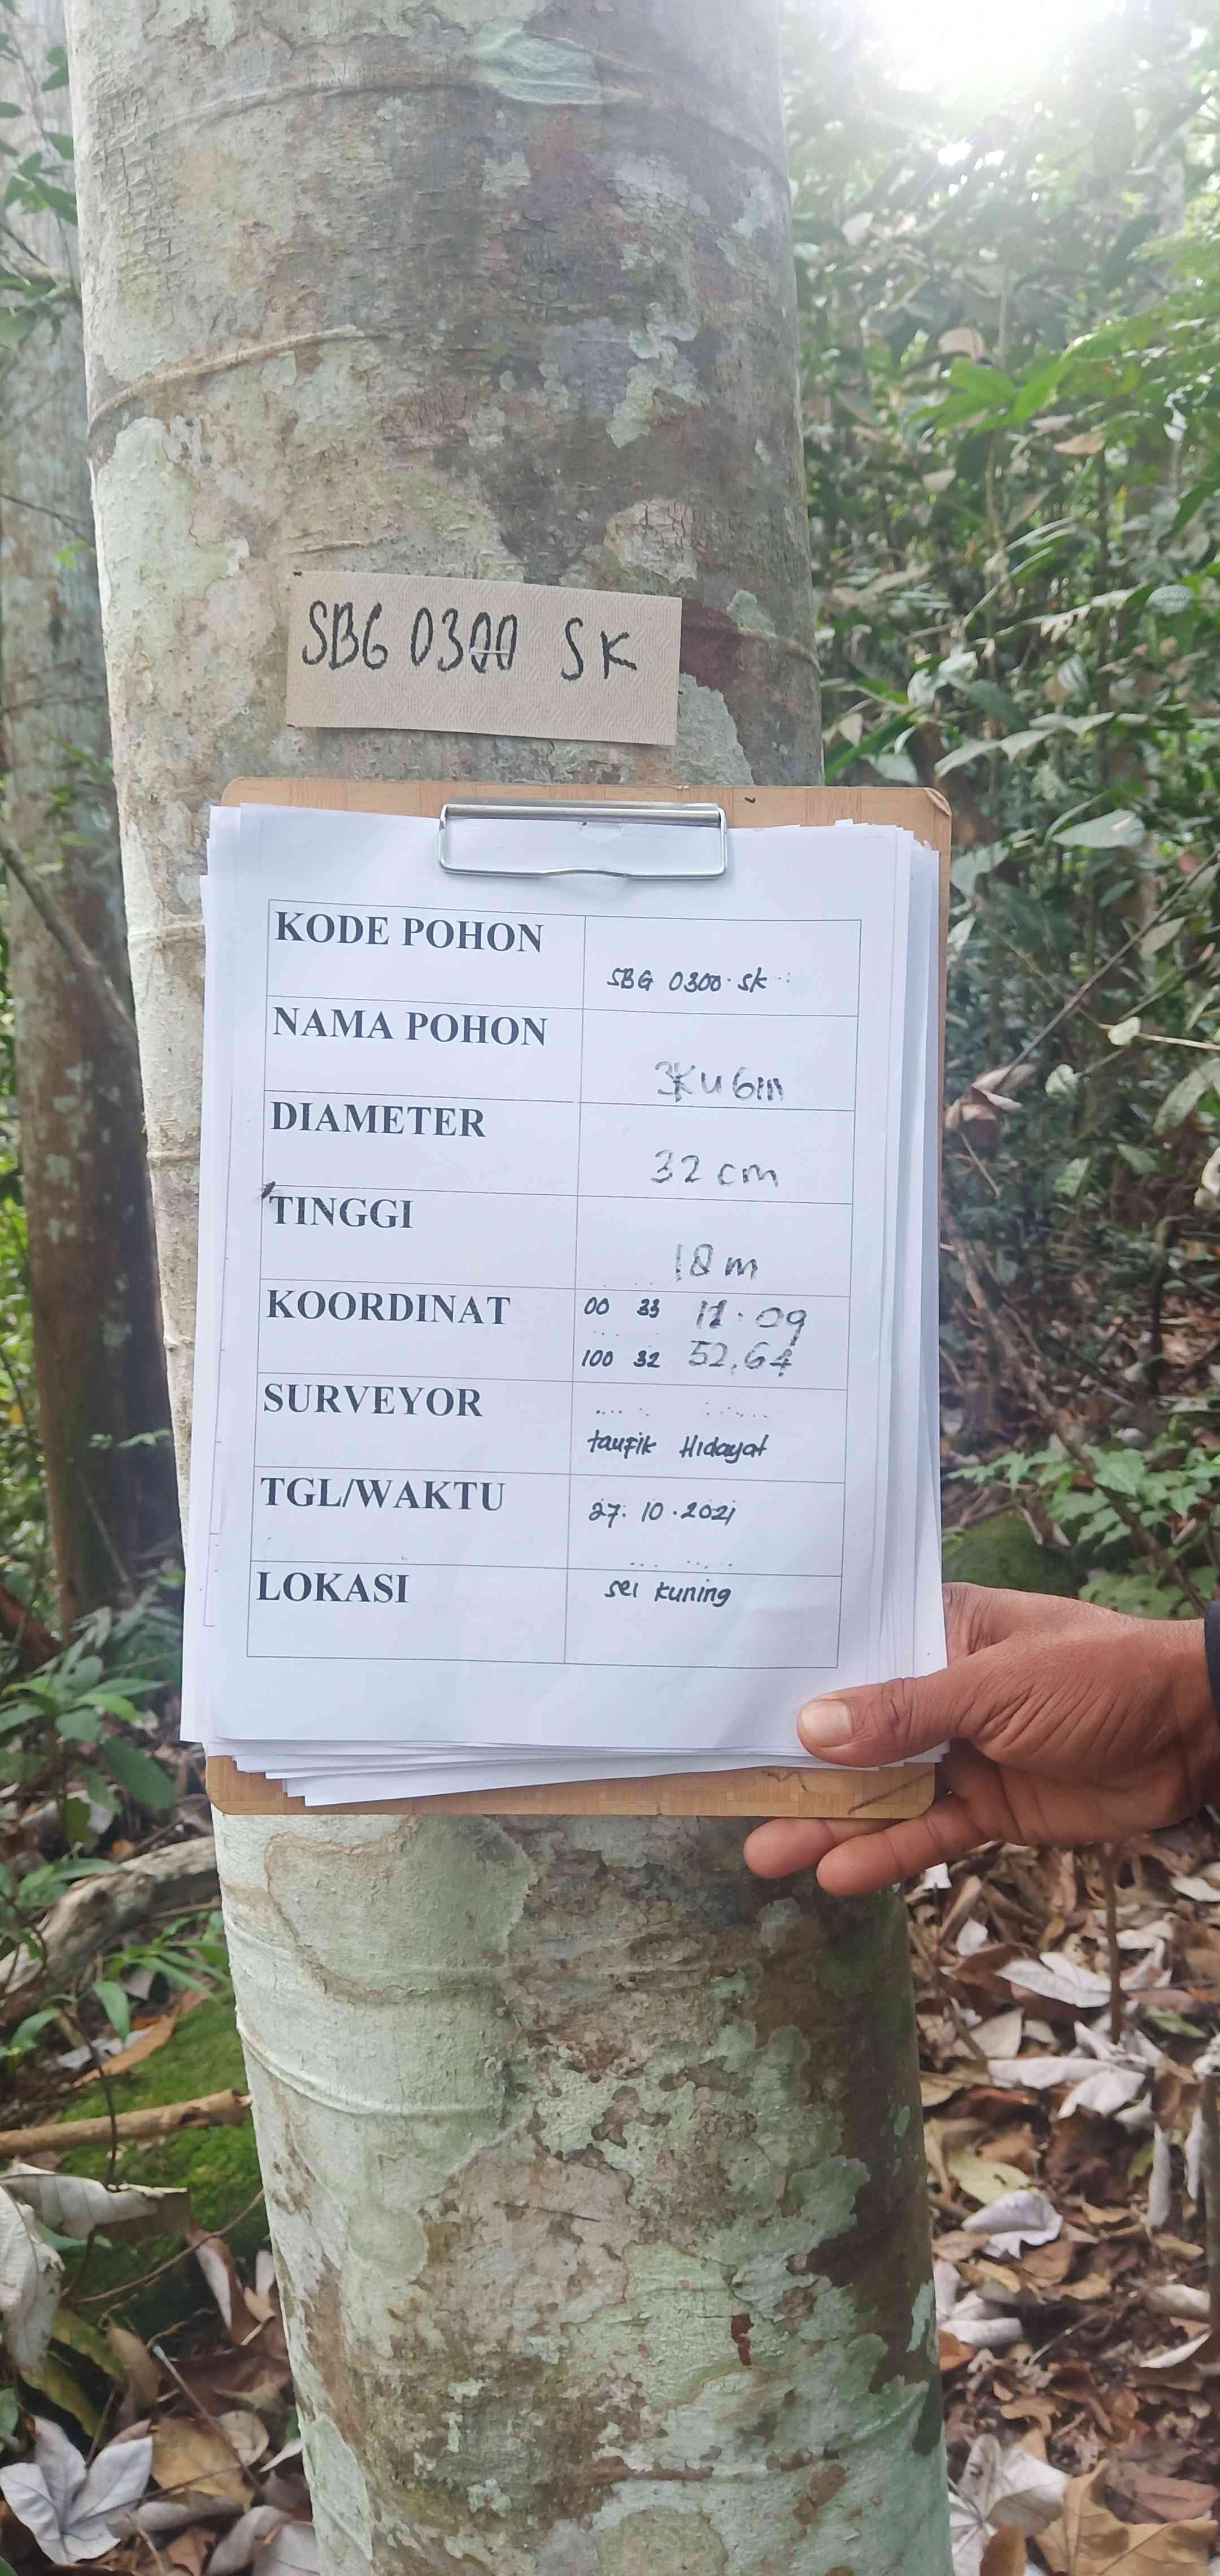 SBG 0300 SK
KODE POHON
SBG 0300. SK
NAMA POHON
KUBIN
DIAMETER
32 cm
TINGGI
18 m
KOORDINAT
00 33 11.09
100 32 52.64
SURVEYOR
taufik Hidayat
TGL/WAKTU
27.10.2021
LOKASI
sei kuning